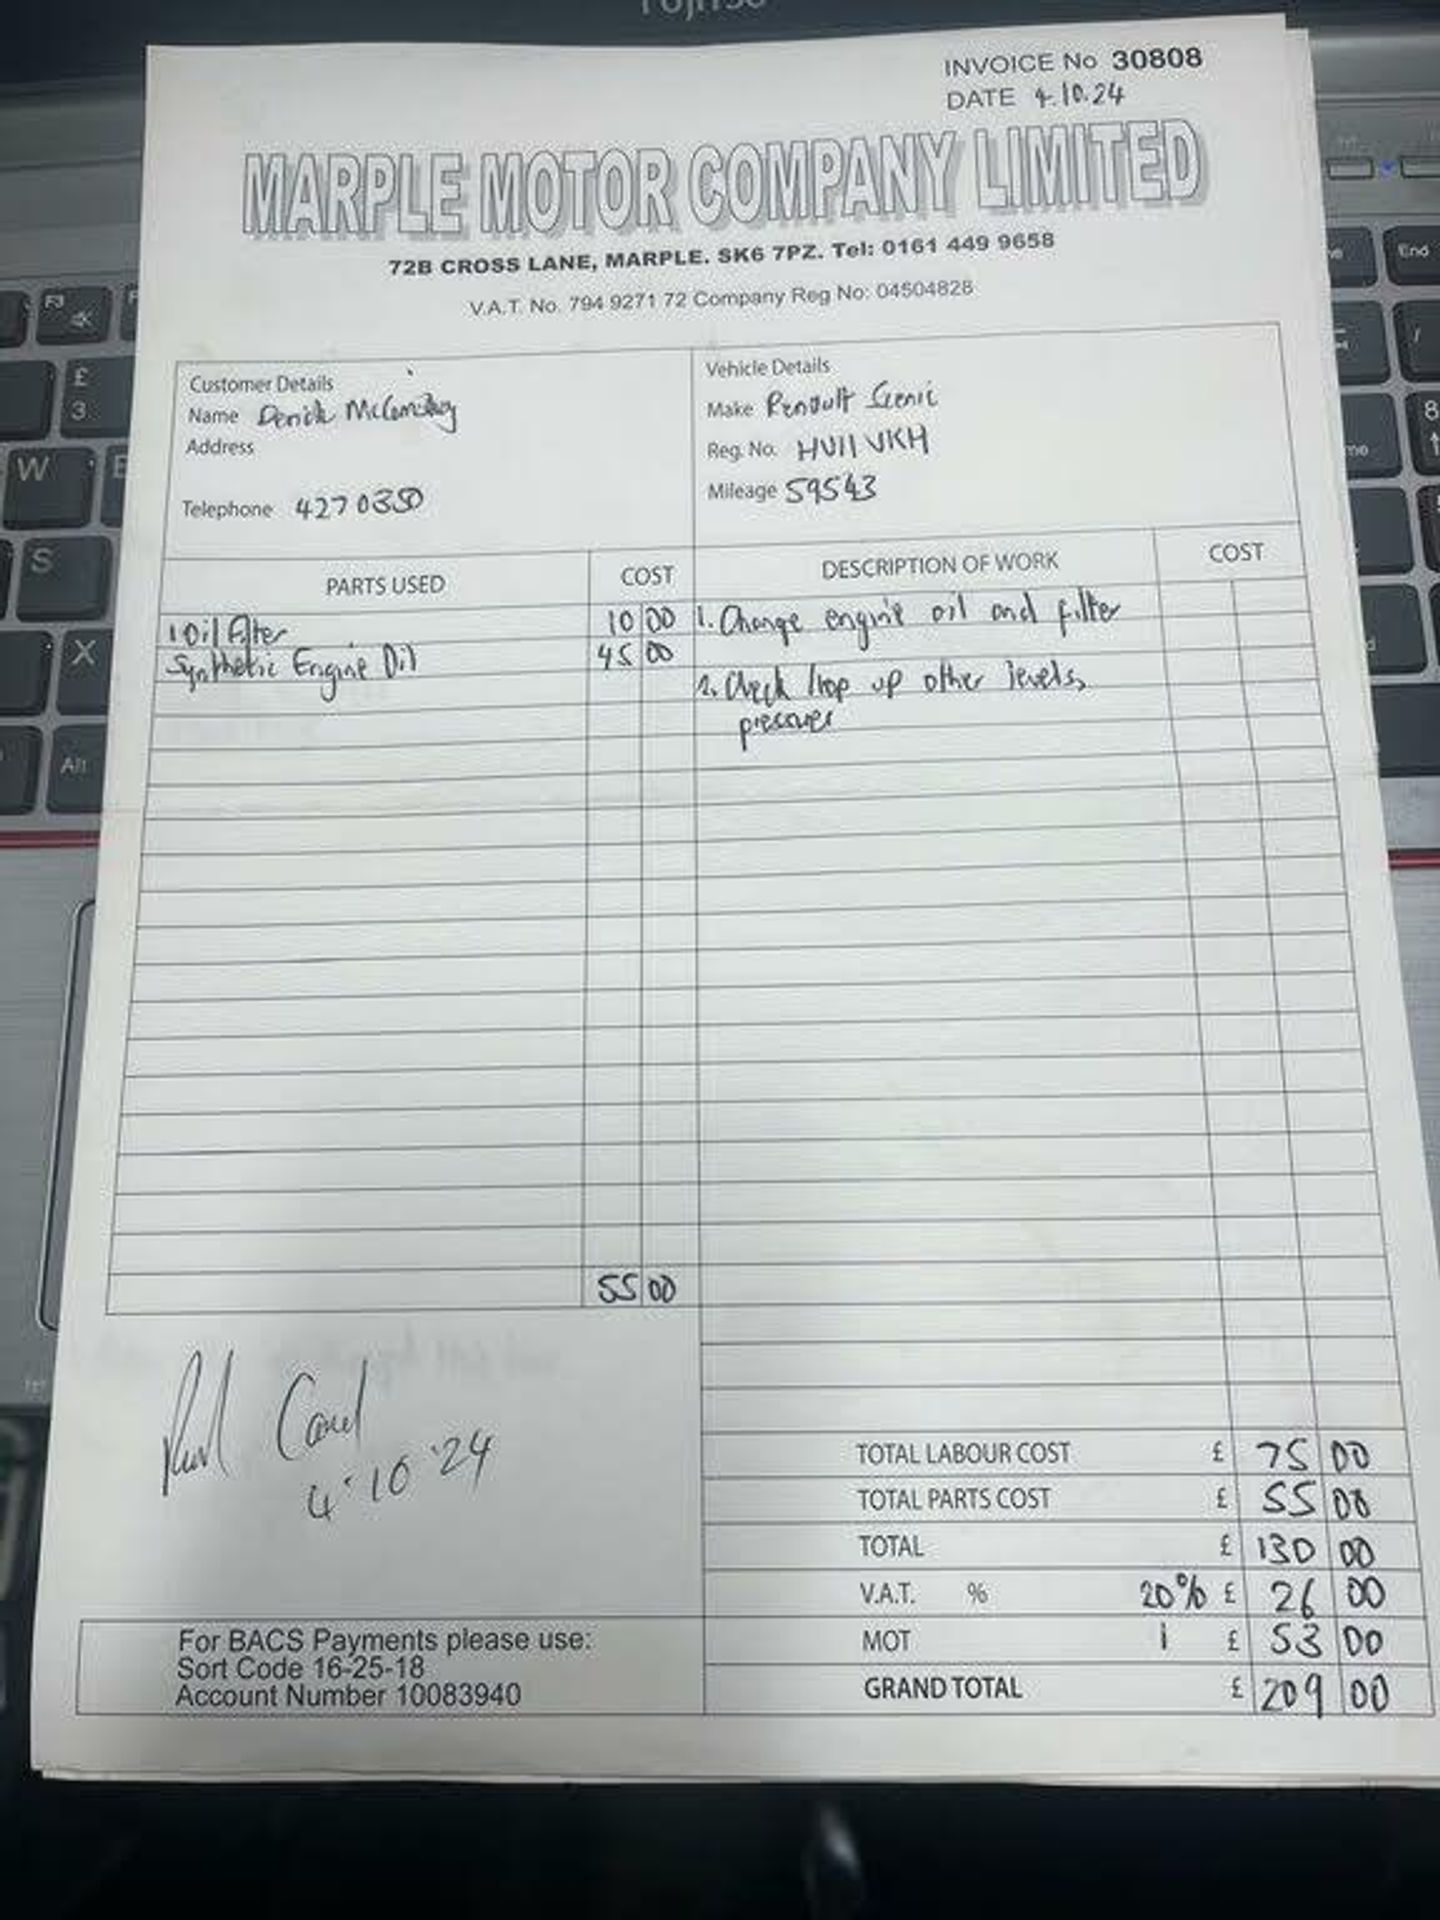 INVOICE No 30808
DATE 4.10.24
MARPLE MOTOR COMPANY LIMITED
72B CROSS LANE, MARPLE. SK6 7PZ. Tel: 0161 449 9658
V.A.T. No. 794 9271 72 Company Reg No: 04504828
Customer Details
Name Derick
Address
Telephone 4270350
Vehicle Details
Make Renault Scenic
Reg. No. HV11 VKH
Mileage 59543
PARTS USED COST DESCRIPTION OF WORK COST
1 Oil filter 10 00 1. Change engine oil and filter
Synthetic Engine Oil 45 00
2. Check / top up other levels,
55 00
4.10.24
TOTAL LABOUR COST £ 75 00
TOTAL PARTS COST £ 55 00
TOTAL £ 130 00
V.A.T. % 20% £ 26 00
MOT 1 £ 53 00
GRAND TOTAL £ 209 00
For BACS Payments please use:
Sort Code 16-25-18
Account Number 10083940
W
S
X
Alt
F3
£
3
End
8